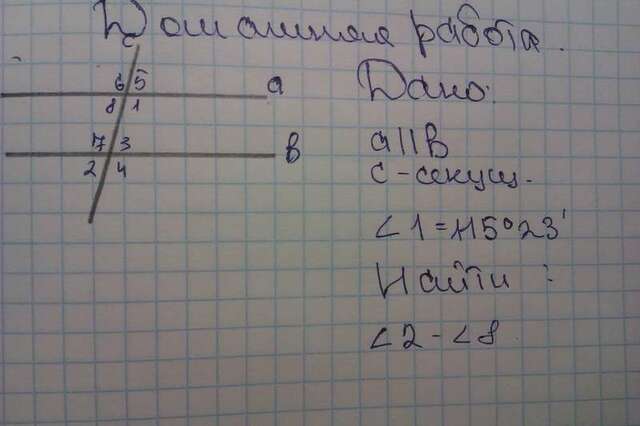 Домашняя работа.
c
6 5
a
8 1
7 3
b
2 4
Дано:
a||b
c-секущ.
∠1=115°23'
Найти:
∠2-∠8